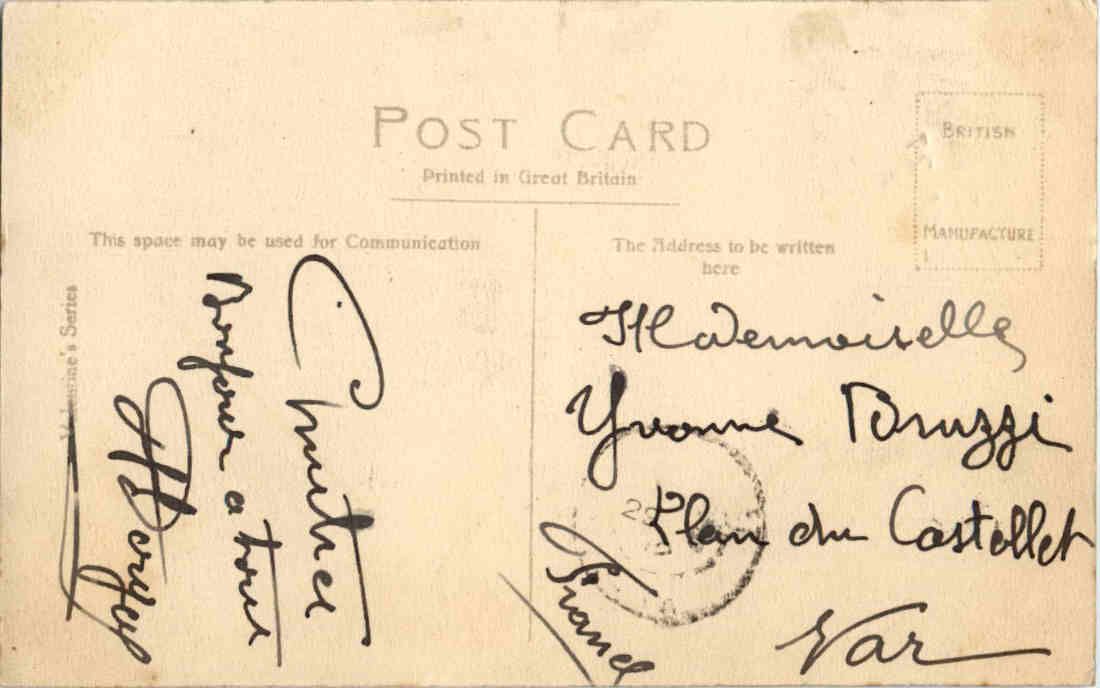 POST CARD
Printed in Great Britain
BRITISH
MANUFACTURE
This space may be used for Communication
The Address to be written
here
Valentine's Series
Amitiés
Bonjour a tous
Mademoiselle
Yvonne Bruzzi
Plan du Castellet
Var
France